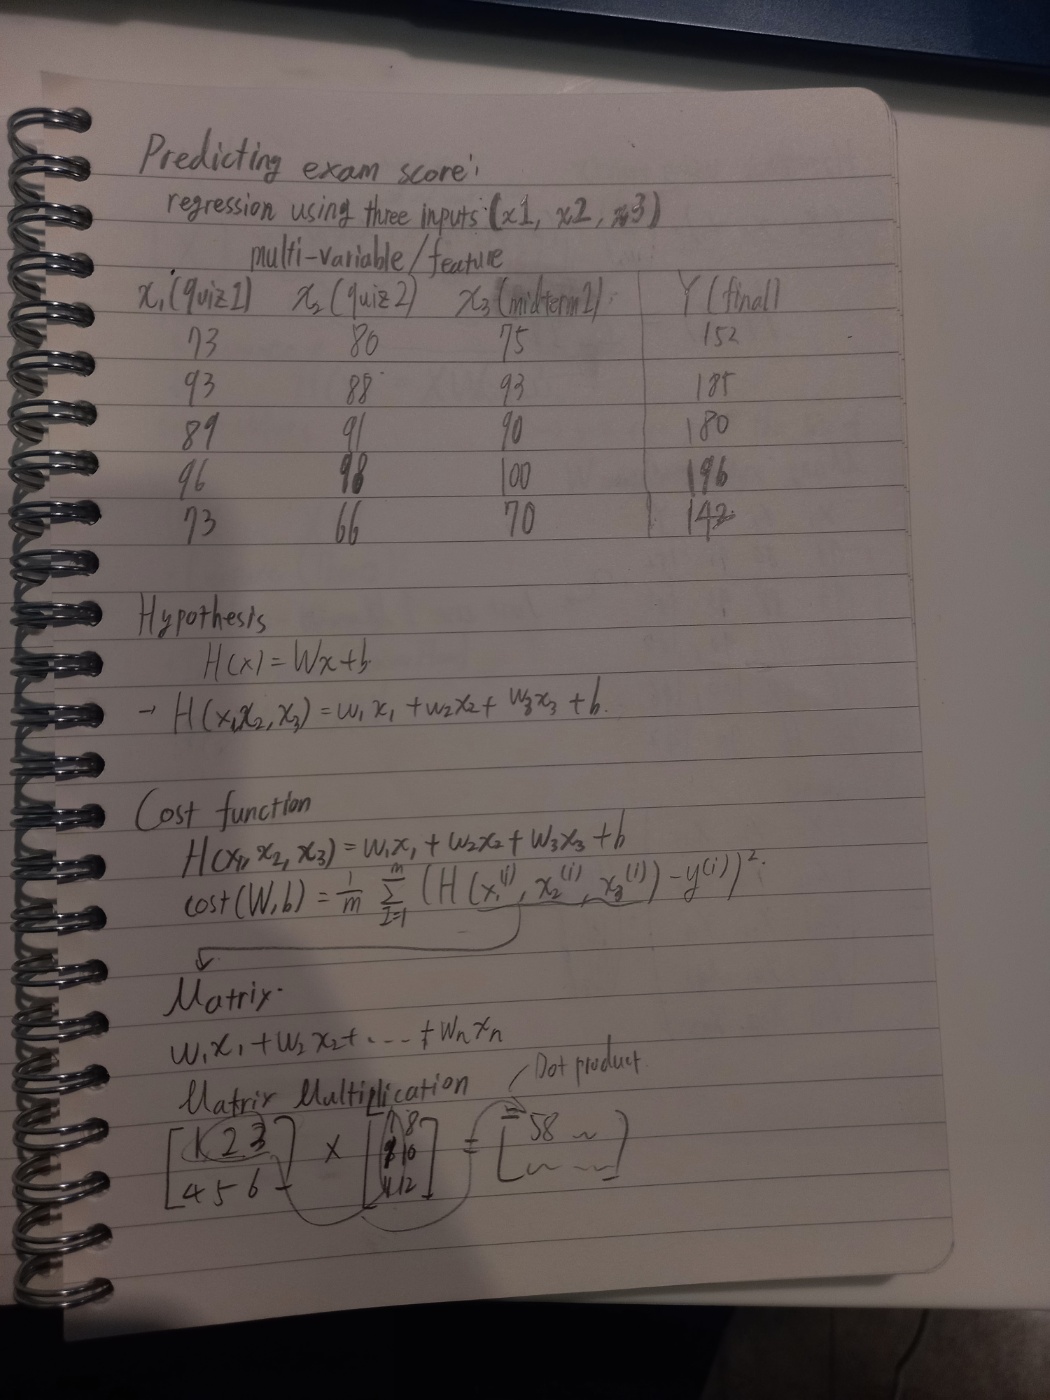 Predicting exam score:
regression using three inputs (x1, x2, x3)
multi-variable/feature
x₁(quiz1) x₂(quiz2) x₃(midterm1) Y(final)
73 80 75 152
93 88 93 185
89 91 90 180
96 98 100 196
73 66 70 142
Hypothesis
H(x) = Wx+b
→ H(x₁,x₂,x₃) = w₁x₁ + w₂x₂ + w₃x₃ + b.
Cost function
H(x₁, x₂, x₃) = w₁x₁ + w₂x₂ + w₃x₃ + b
cost(W,b) = 1/m Σ i=1 m (H(x₁⁽ⁱ⁾, x₂⁽ⁱ⁾, x₃⁽ⁱ⁾) - y⁽ⁱ⁾)².
Matrix.
w₁x₁ + w₂x₂ + .... + wₙxₙ
Dot product
Matrix Multiplication
[1 2 3] × [7 8] = [58 ~]
[4 5 6] [9 10] [~ ~]
[11 12]